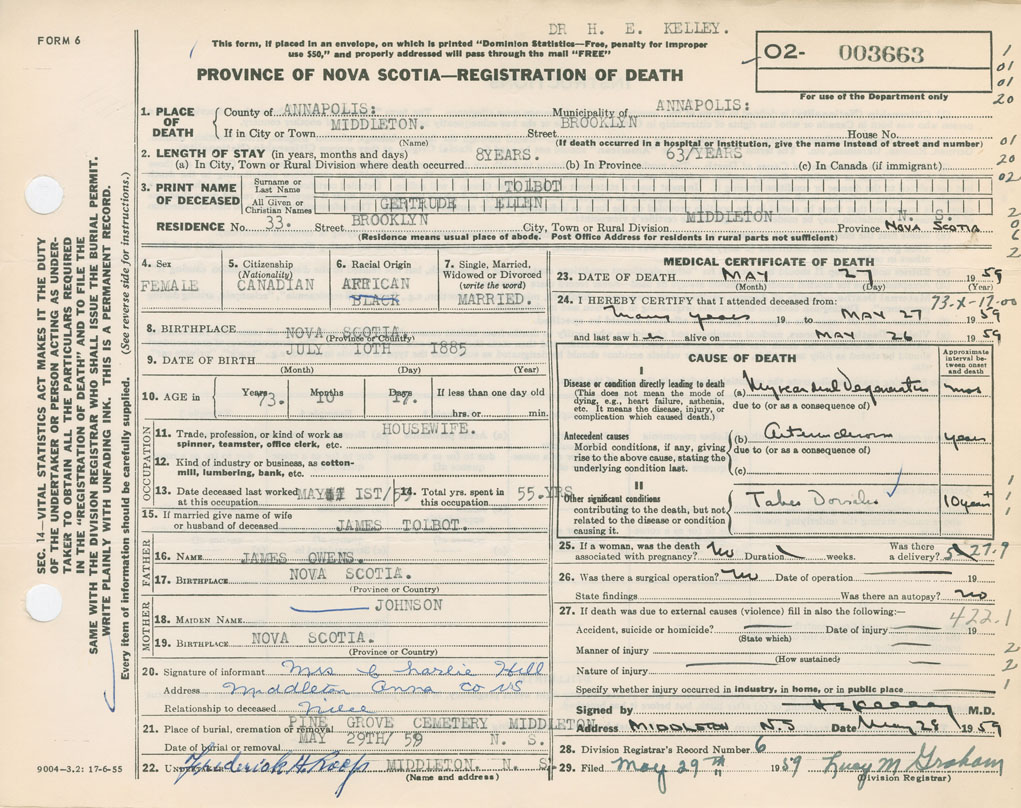 DR H. E. KELLEY.
FORM 6
This form, if placed in an envelope, on which is printed "Dominion Statistics—Free, penalty for improper
use $50," and properly addressed will pass through the mail "FREE"
PROVINCE OF NOVA SCOTIA—REGISTRATION OF DEATH
02- 003663
For use of the Department only
1
01
01
20
01
20
02
2
0
6
2
SEC. 14—VITAL STATISTICS ACT MAKES IT THE DUTY
OF THE UNDERTAKER OR PERSON ACTING AS UNDER-
TAKER TO OBTAIN ALL THE PARTICULARS REQUIRED
IN THE "REGISTRATION OF DEATH" AND TO FILE THE
SAME WITH THE DIVISION REGISTRAR WHO SHALL ISSUE THE BURIAL PERMIT.
WRITE PLAINLY WITH UNFADING INK. THIS IS A PERMANENT RECORD.
Every item of information should be carefully supplied. (See reverse side for instructions.)
1. PLACE OF DEATH
County of ANNAPOLIS: Municipality of ANNAPOLIS:
If in City or Town MIDDLETON. Street BROOKLYN House No.
(Name) (If death occurred in a hospital or institution, give the name instead of street and number)
2. LENGTH OF STAY (in years, months and days)
(a) In City, Town or Rural Division where death occurred 8YEARS. (b) In Province 63/YEARS (c) In Canada (if immigrant)
3. PRINT NAME OF DECEASED
Surname or Last Name TOLBOT
All Given or Christian Names GERTRUDE ELLEN
RESIDENCE No. 33. Street BROOKLYN City, Town or Rural Division MIDDLETON Province N. S. NOVA SCOTIA
(Residence means usual place of abode. Post Office Address for residents in rural parts not sufficient)
4. Sex
FEMALE
5. Citizenship
(Nationality)
CANADIAN
6. Racial Origin
AFRICAN
BLACK
7. Single, Married, Widowed or Divorced
(write the word)
MARRIED.
8. BIRTHPLACE NOVA SCOTIA.
(Province or Country)
9. DATE OF BIRTH JULY 10TH 1885
(Month) (Day) (Year)
10. AGE in Years 73. Months 10 Days 17. If less than one day old
hrs. or min.
OCCUPATION
11. Trade, profession, or kind of work as HOUSEWIFE.
spinner, teamster, office clerk, etc.
12. Kind of industry or business, as cotton-
mill, lumbering, bank, etc.
13. Date deceased last worked at this occupation MAY 1ST/59 14. Total yrs. spent in this occupation 55.YRS
15. If married give name of wife
or husband of deceased JAMES TOLBOT.
FATHER
16. NAME JAMES OWENS.
17. BIRTHPLACE NOVA SCOTIA.
(Province or Country)
MOTHER
18. MAIDEN NAME JOHNSON
19. BIRTHPLACE NOVA SCOTIA.
(Province or Country)
20. Signature of informant Mrs Charlie Hill
Address Middleton Anna Co NS
Relationship to deceased niece
21. Place of burial, cremation or removal PINE GROVE CEMETERY MIDDLETON
Date of burial or removal MAY 29TH/ 59 N. S.
22. Undertaker Frederick H. Roop MIDDLETON. N. S.
(Name and address)
9004-3.2: 17-6-55
MEDICAL CERTIFICATE OF DEATH
23. DATE OF DEATH MAY 27 1959
(Month) (Day) (Year)
73-X-17.00
24. I HEREBY CERTIFY that I attended deceased from:
Many years 19 to MAY 27 1959
and last saw h er alive on MAY 26 1959
CAUSE OF DEATH
Approximate interval between onset and death
I
Disease or condition directly leading to death
(This does not mean the mode of
dying, e.g., heart failure, asthenia,
etc. It means the disease, injury, or
complication which caused death.)
(a) Myocardial Degeneration mos
due to (or as a consequence of)
Antecedent causes
Morbid conditions, if any, giving
rise to the above cause, stating the
underlying condition last.
(b) Arteriosclerosis years
due to (or as a consequence of)
(c)
II
Other significant conditions
contributing to the death, but not
related to the disease or condition
causing it.
Tabes Dorsalis 10 years+
1
1
1
25. If a woman, was the death associated with pregnancy? No Duration weeks. Was there a delivery?
27.9
26. Was there a surgical operation? No Date of operation 19
State findings Was there an autopsy? No
27. If death was due to external causes (violence) fill in also the following:—
422.1
Accident, suicide or homicide? Date of injury 19
(State which)
Manner of injury 2
(How sustained)
Nature of injury 2
Specify whether injury occurred in industry, in home, or in public place 1
Signed by H E Kelley M.D.
Address MIDDLETON N.S Date May 28 1959
28. Division Registrar's Record Number 6
29. Filed May 29th 1959 Lucy M Graham
(Division Registrar)